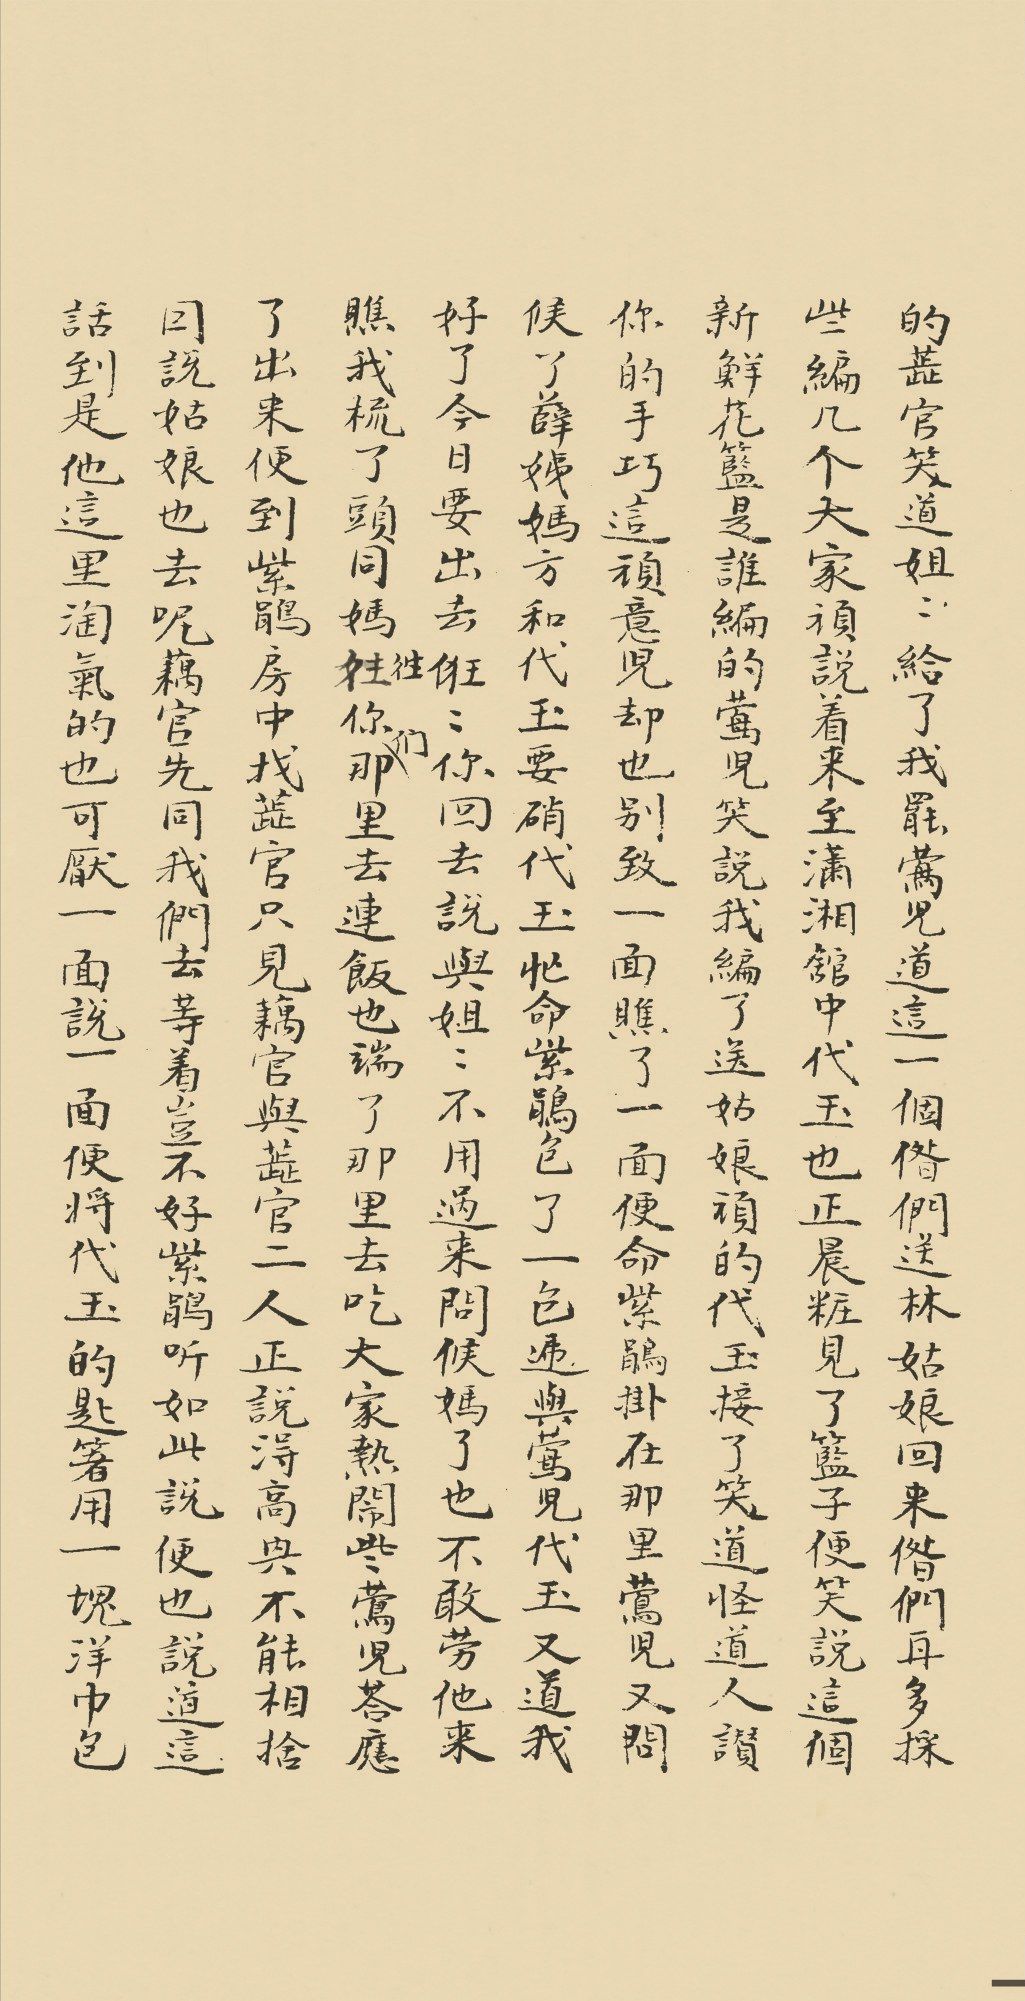 的蕋官笑道姐〻給了我罷鶯児道這一個偺們送林姑娘回来偺們再多採
些編几个大家頑說着来至瀟湘舘中代玉也正晨粧見了籃子便笑說這個
新鮮花籃是誰編的鶯児笑說我編了送姑娘頑的代玉接了笑道怪道人讃
你的手巧這頑意児却也别致一面瞧了一面便命紫鵑掛在那里鶯児又問
候了薛姨媽方和代玉要硝代玉忙命紫鵑包了一包遞與鶯児代玉又道我
好了今日要出去俇〻你回去說與姐〻不用過来問候媽了也不敢劳他来
瞧我梳了頭同媽姓徃你们那里去連飯也端了那里去吃大家熱鬧些鶯児荅應
了出来便到紫鵑房中找蕋官只見藕官與蕋官二人正說淂高興不能相捨
因說姑娘也去呢藕官先同我們去等着豈不好紫鵑听如此說便也說道這
話到是他這里淘氣的也可厭一面說一面便將代玉的匙箸用一塊洋巾包